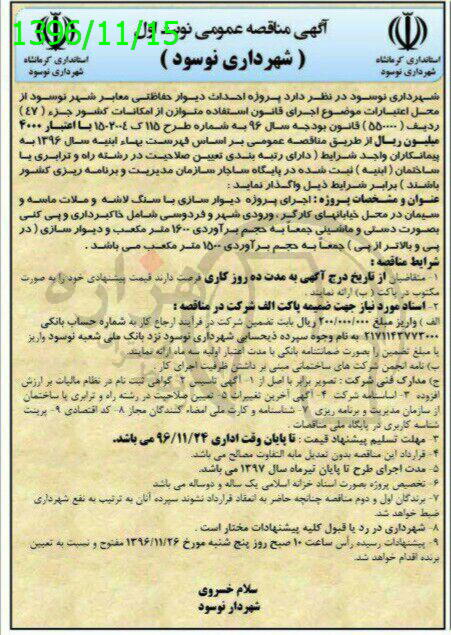 1396/11/15
آگهی مناقصه عمومی نوبت اول
( شهرداری نوسود )
استانداری کرمانشاه
شهرداری نوسود
استانداری کرمانشاه
شهرداری نوسود
شهرداری نوسود در نظر دارد پروژه احداث دیوار حفاظتی معابر شهر نوسود از
محل اعتبارات موضوع اجرای قانون استفاده متوازن از امکانات کشور جزء ( ۴۷ )
ردیف ( ۵۵۰۰۰۰ ) قانون بودجه سال ۹۶ به شماره طرح ۱۱۵ ک ۱۵۰۳۰۰۴ با اعتبار ۴۰۰۰
میلیون ریال از طریق مناقصه عمومی بر اساس فهرست بهاء ابنیه سال ۱۳۹۶ به
پیمانکاران واجد شرایط ( دارای رتبه بندی تعیین صلاحیت در رشته راه و ترابری یا
ساختمان ( ابنیه ) ثبت شده در پایگاه ساجار سازمان مدیریت و برنامه ریزی کشور
باشند ) برابر شرایط ذیل واگذار نمایند :
عنوان و مشخصات پروژه : اجرای پروژه دیوار سازی با سنگ لاشه و ملات ماسه و
سیمان در محل خیابانهای کارگر ، ورودی شهر و فردوسی شامل خاکبرداری و پی کنی
بصورت دستی و ماشینی جمعاً به حجم برآوردی ۱۶۰۰ متر مکعب و دیوار سازی ( در
پی و بالاتر از پی ) جمعاً به حجم برآوردی ۱۵۰۰ متر مکعب می باشد .
شرایط مناقصه :
۱- متقاضیان از تاریخ درج آگهی به مدت ده روز کاری فرصت دارند قیمت پیشنهادی خود را به صورت
مکتوب در پاکت ( ب) ارائه نمایند .
۲- اسناد مورد نیاز جهت ضمیمه پاکت الف شرکت در مناقصه :
الف ) واریز مبلغ ۲۰۰/۰۰۰/۰۰۰ ریال بابت تضمین شرکت در فرآیند ارجاع کار به شماره حساب بانکی
۲۱۷۱۱۴۳۷۷۳۰۰۰ به نام وجوه سپرده ذیحسابی شهرداری نوسود نزد بانک ملی شعبه نوسود واریز
یا مبلغ تضمین را بصورت ضمانتنامه بانکی با مدت اعتبار اولیه سه ماه ارائه نمایند.
ب) نامه انجمن شرکت های ساختمانی مبنی بر داشتن ظرفیت اجرای کار .
ج) مدارک فنی شرکت : تصویر برابر با اصل از ۱- آگهی تاسیس ۲- گواهی ثبت نام در نظام مالیات بر ارزش
افزوده ۳- اساسنامه شرکت ۴- آگهی آخرین تغییرات ۵- تعیین صلاحیت در رشته راه و ترابری یا ساختمان
از سازمان مدیریت و برنامه ریزی ۷- شناسنامه و کارت ملی امضاء کنندگان مجاز ۸- کد اقتصادی ۹- پرینت
شناسه کاربری در پایگاه ملی مناقصات .
۳- مهلت تسلیم پیشنهاد قیمت : تا پایان وقت اداری ۹۶/۱۱/۲۴ می باشد.
۴- قرارداد این مناقصه بدون تعدیل مابه التفاوت مصالح می باشد.
۵- مدت اجرای طرح تا پایان تیرماه سال ۱۳۹۷ می باشد.
۶- تخصیص پروژه بصورت اسناد خزانه اسلامی یک ساله و دوساله می باشد
۷- برندگان اول و دوم مناقصه چنانچه حاضر به انعقاد قرارداد نشوند سپرده آنان به ترتیب به نفع شهرداری
ضبط خواهد شد.
۸- شهرداری در رد یا قبول کلیه پیشنهادات مختار است .
۹- پیشنهادات رسیده رأس ساعت ۱۰ صبح روز پنج شنبه مورخ ۱۳۹۶/۱۱/۲۶ مفتوح و نسبت به تعیین
برنده اقدام خواهد شد.
سلام خسروی
شهردار نوسود